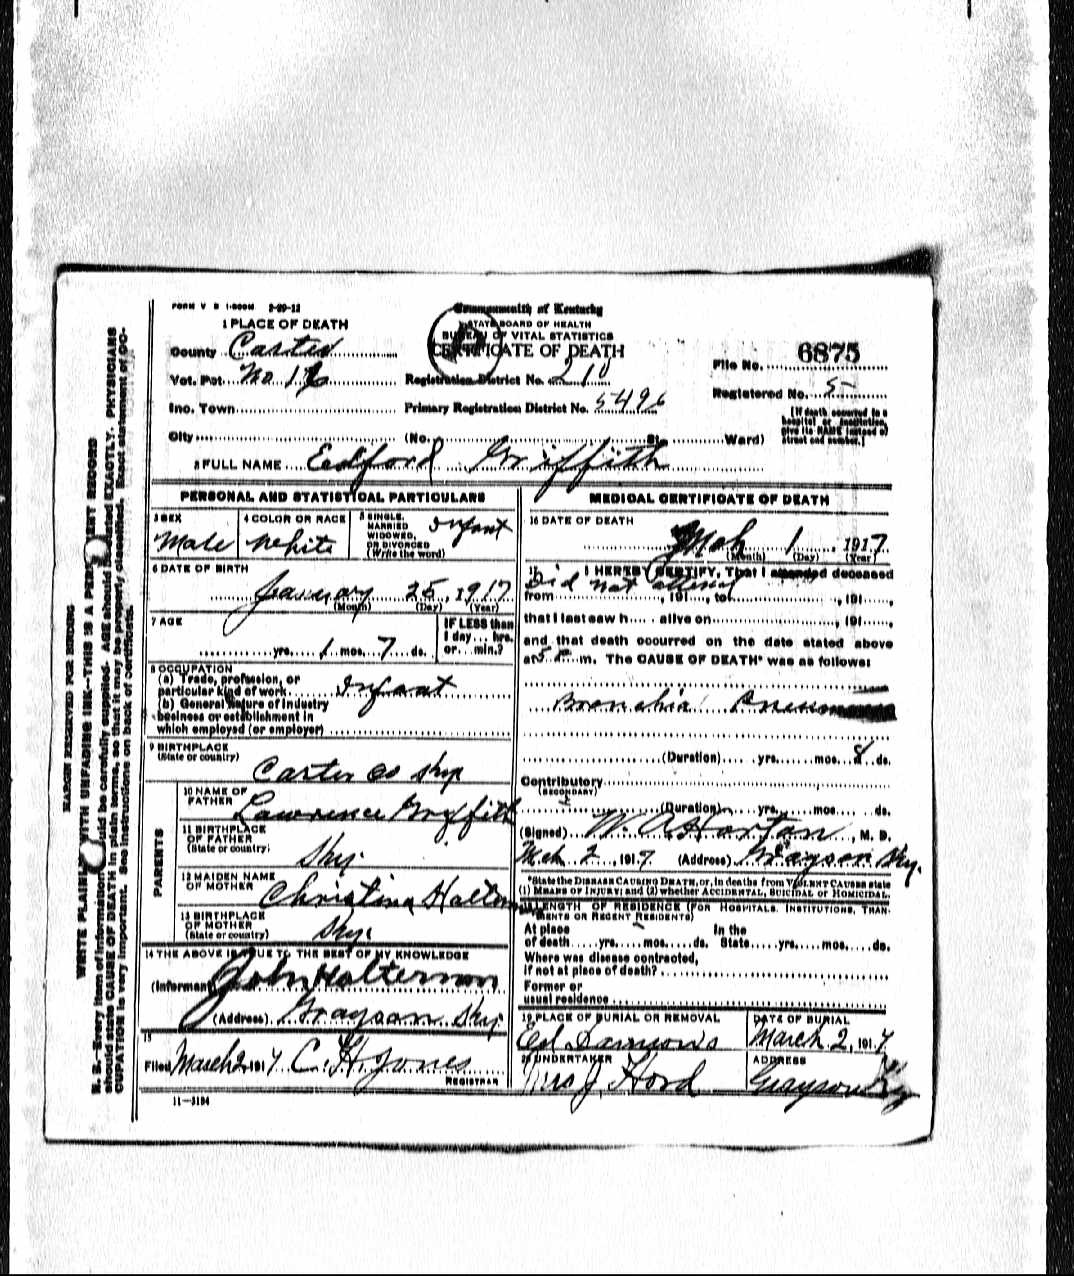 FORM V S 1-500M 2-29-12
Commonwealth of Kentucky
STATE BOARD OF HEALTH
BUREAU OF VITAL STATISTICS
CERTIFICATE OF DEATH
1 PLACE OF DEATH
County Carter
Vot. Pct. No 16
Inc. Town
City (No. St. Ward)
Registration District No. 210
Primary Registration District No. 5496
File No. 6875
Registered No. 5
[If death occurred in a hospital or institution, give its NAME instead of street and number.]
2 FULL NAME Edford Griffith
PERSONAL AND STATISTICAL PARTICULARS
3 SEX Male
4 COLOR OR RACE White
5 SINGLE, MARRIED WIDOWED, OR DIVORCED (Write the word) Infant
6 DATE OF BIRTH
January 25, 1917
(Month) (Day) (Year)
7 AGE
yrs. 1 mos. 7 ds.
IF LESS than 1 day... hrs. or... min.?
8 OCCUPATION
(a) Trade, profession, or
particular kind of work Infant
(b) General Nature of Industry
business or establishment in
which employed (or employer)
9 BIRTHPLACE
(State or country) Carter Co Ky
PARENTS
10 NAME OF FATHER Lawrence Griffith
11 BIRTHPLACE OF FATHER (State or country) Ky.
12 MAIDEN NAME OF MOTHER Christina Halterm
13 BIRTHPLACE OF MOTHER (State or country) Ky.
14 THE ABOVE IS TRUE TO THE BEST OF MY KNOWLEDGE
(Informant) John Halterman
(Address) Grayson Ky
15
Filed March 2 1917 C. H. Jones
REGISTRAR
11—3184
MEDICAL CERTIFICATE OF DEATH
16 DATE OF DEATH
Mch 1 1917
(Month) (Day) (Year)
17 I HEREBY CERTIFY, That I attended deceased
Did not attend
from , 191 , to , 191 ,
that I last saw h alive on , 191 ,
and that death occurred on the date stated above
at 5 P m. The CAUSE OF DEATH* was as follows:
Bronchial Pneumonia
(Duration) yrs. mos. 8 ds.
Contributory
(SECONDARY)
(Duration) yrs. mos. ds.
(Signed) W. A. Horton, M. D.
Mch 2, 1917 (Address) Grayson Ky.
*State the DISEASE CAUSING DEATH, or, in deaths from VIOLENT CAUSES state
(1) MEANS OF INJURY; and (2) whether ACCIDENTAL, SUICIDAL or HOMICIDAL.
18 LENGTH OF RESIDENCE (FOR HOSPITALS, INSTITUTIONS, TRAN-
SIENTS OR RECENT RESIDENTS)
At place In the
of death yrs. mos. ds. State yrs. mos. ds.
Where was disease contracted,
if not at place of death?
Former or
usual residence
19 PLACE OF BURIAL OR REMOVAL
DATE OF BURIAL
March 2, 1917
20 UNDERTAKER
Mrs J. Hord
ADDRESS
Grayson Ky
MARGIN RESERVED FOR BINDING
WRITE PLAINLY WITH UNFADING INK—THIS IS A PERMANENT RECORD
N. B.—Every item of information should be carefully supplied. AGE should be stated EXACTLY. PHYSICIANS
should state CAUSE OF DEATH in plain terms, so that it may be properly classified. Exact statement of OC-
CUPATION is very important. See instructions on back of certificate.